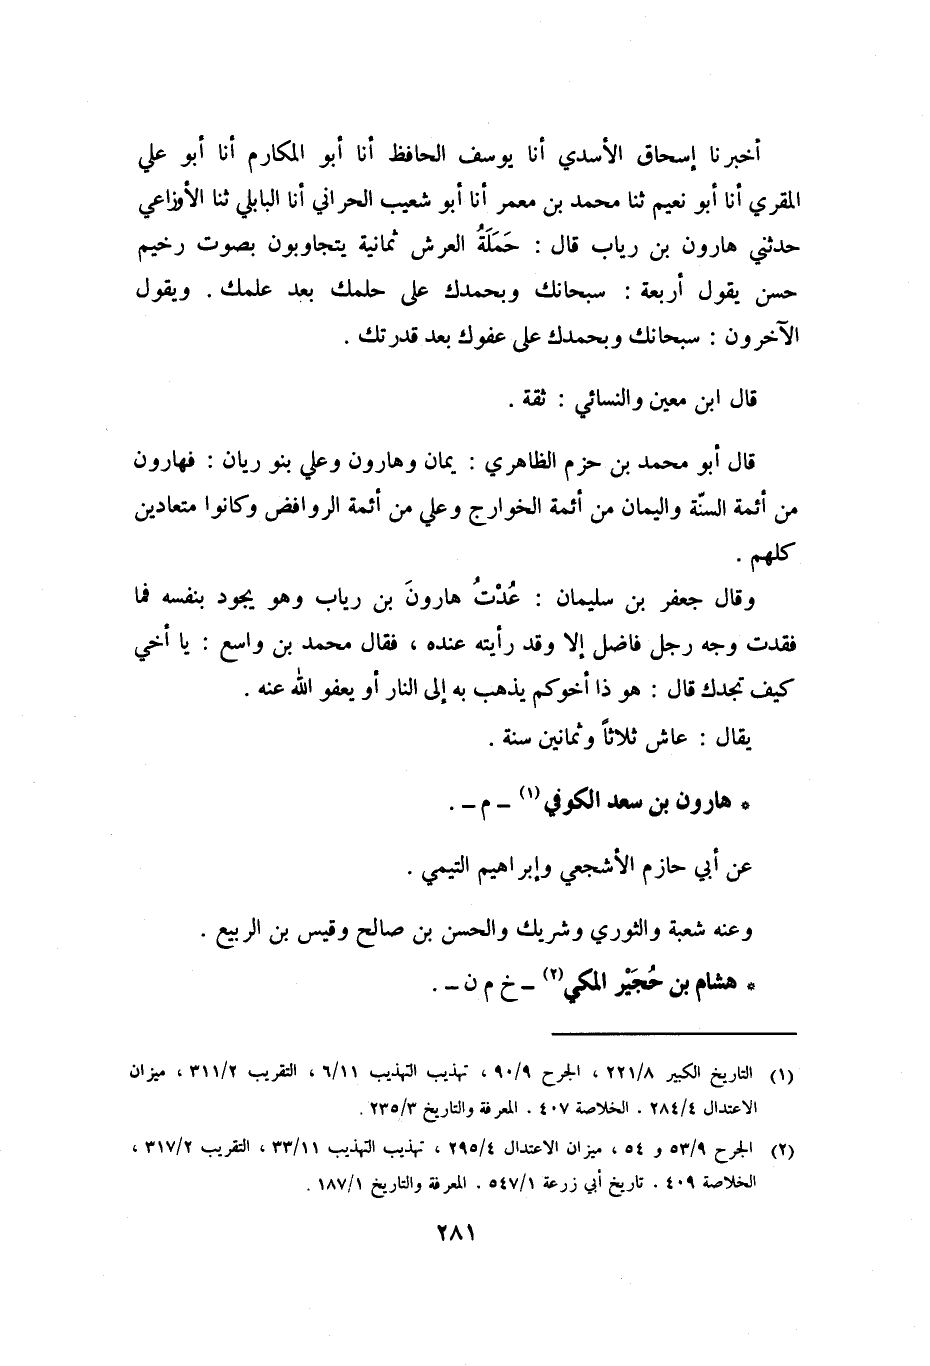 أخبرنا إسحاق الأسدي أنا يوسف الحافظ أنا أبو المكارم أنا أبو علي
المقري أنا أبو نعيم ثنا محمد بن معمر أنا أبو شعيب الحراني أنا البابلي ثنا الأوزاعي
حدثني هارون بن رياب قال : حَمَلَةُ العرش ثمانية يتجاوبون بصوت رخيم
حسن يقول أربعة : سبحانك وبحمدك على حلمك بعد علمك . ويقول
الآخرون : سبحانك وبحمدك على عفوك بعد قدرتك .
قال ابن معين والنسائي : ثقة .
قال أبو محمد بن حزم الظاهري : يمان وهارون وعلي بنو ريان : فهارون
من أئمة السنّة واليمان من أئمة الخوارج وعلي من أئمة الروافض وكانوا متعادين
كلهم .
وقال جعفر بن سليمان : عُدْتُ هارونَ بن رياب وهو يجود بنفسه فما
فقدت وجه رجل فاضل إلا وقد رأيته عنده ، فقال محمد بن واسع : يا أخي
كيف تجدك قال : هو ذا أخوكم يذهب به إلى النار أو يعفو الله عنه .
يقال : عاش ثلاثاً وثمانين سنة .
* هارون بن سعد الكوفي (١) ـ م ـ .
عن أبي حازم الأشجعي وإبراهيم التيمي .
وعنه شعبة والثوري وشريك والحسن بن صالح وقيس بن الربيع .
* هشام بن حُجَيْر المكي (٢) ـ خ م ن ـ .
(١) التاريخ الكبير ٢٢١/٨ ، الجرح ٩٠/٩ ، تهذيب التهذيب ٦/١١ ، التقريب ٣١١/٢ ، ميزان
الاعتدال ٢٨٤/٤ . الخلاصة ٤٠٧ . المعرفة والتاريخ ٢٣٥/٣ .
(٢) الجرح ٥٣/٩ و ٥٤ ، ميزان الاعتدال ٢٩٥/٤ ، تهذيب التهذيب ٣٣/١١ ، التقريب ٣١٧/٢ ،
الخلاصة ٤٠٩ . تاريخ أبي زرعة ٥٤٧/١ . المعرفة والتاريخ ١٨٧/١ .
٢٨١